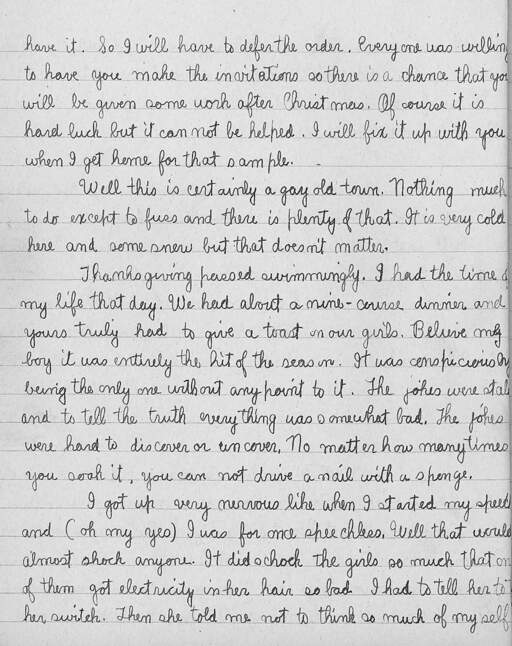 have it. So I will have to defer the order. Everyone was willin
to have you make the invitations so there is a chance that yo
will be given some work after Christmas. Of course it is
hard luck but it can not be helped. I will fix it up with you
when I get home for that sample.
Well this is certainly a gay old town. Nothing much
to do except to fuss and there is plenty of that. It is very cold
here and some snow but that doesn't matter.
Thanksgiving passed swimmingly. I had the time o
my life that day. We had about a nine-course dinner and
yours truly had to give a toast on our girls. Belive me
boy it was entirely the hit of the season. It was conspicious by
being the only one without any point to it. The jokes were stal
and to tell the truth everything was somewhat bad. The jokes
were hard to discover or uncover. No matter how many times
you soak it, you can not drive a nail with a sponge.
I got up very nervous like when I started my speed
and (oh my yes) I was for once speechless. Well that would
almost shock anyone. It did schock the girls so much that on
of them got electricity in her hair so bad I had to tell her to
her switch. Then she told me not to think so much of my self